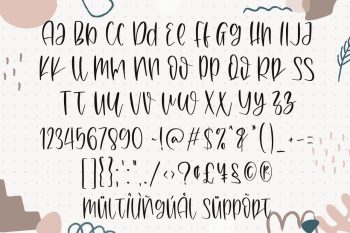 Aa Bb Cc Dd Ee Ff Gg Hh Ii Jj
Kk Ll Mm Nn Oo Pp Qq Rr Ss
Tt Uu Vv Ww Xx Yy Zz
1234567890 ~!@#$%^&*()_+-=
[]{};':",./<>?¢£¥§©®
MÜLTÍLÌÑGÚÂL SÜPPÖRT